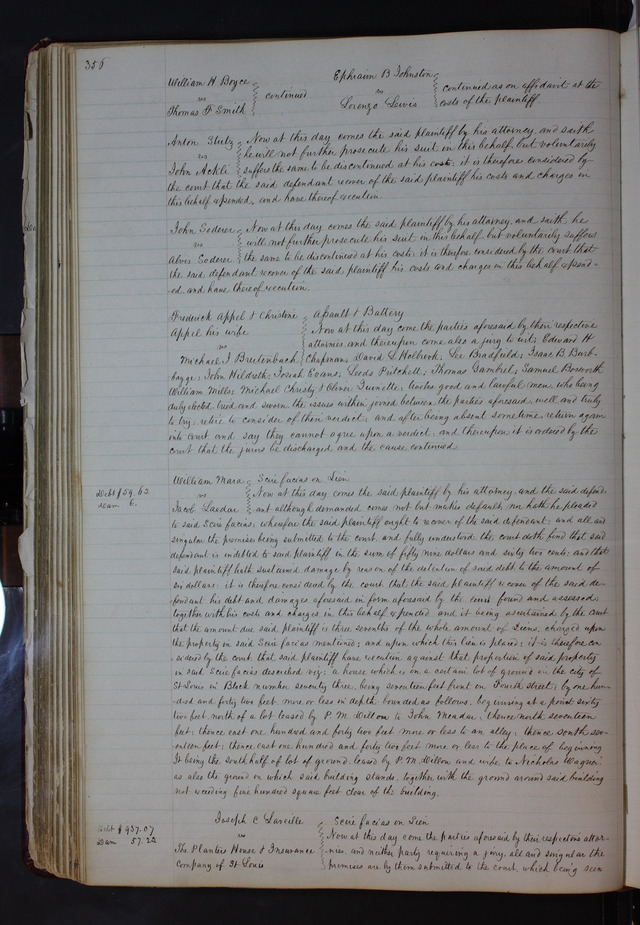 356
William H Boyce
vs
Thomas F Smith
continued
Ephraim B Johnston
vs
Lorenzo Lewis
continued as on affidavit at the
costs of the plaintiff
Anton Stutz
vs
John Ackle
Now at this day comes the said plaintiff by his attorney, and saith
he will not further prosecute his suit in this behalf, but voluntarily
suffers the same to be discontinued at his costs, it is therefore considered by
the court that the said defendant recover of the said plaintiff his costs and charges in
this behalf expended, and have thereof execution.
John Soderer
vs
Alvis Soderer
Now at this day comes the said plaintiff by his attorney, and saith he
will not further prosecute his suit in this behalf but voluntarily suffers
the same to be discontinued at his costs: it is therefore considered by the court that
the said defendant recover of the said plaintiff his costs and charges in this behalf expend-
ed and have thereof execution.
Frederick Appel & Christine
Appel his wife
vs
Michael J Breitenbach
Assault & Battery
Now at this day come the parties aforesaid by their respective
attornies, and thereupon come also a jury to wit; Edward H
Chapman, David L Holbrook, Lee Bradfield; Isaac B Burb-
bayge; John Hildreth; Josiah Evans; Leeds Pritchell; Thomas Gambrel; Samuel Bosworth
William Mills; Michael Christy & Oliver Quinette; twelve good and lawful men, who being
duly elected, tried and sworn the issues within joined between the parties aforesaid well and truly
to try; retire to consider of their verdict; and after being absent sometime, return again
into court and say they cannot agree upon a verdict, and thereupon it is ordered by the
court that the jurors be discharged and the cause continued.
Debt $59.62
Dam 6.
William Mara
vs
Jacob Laedue
Scire facias on Lien
Now at this day comes the said plaintiff by his attorney and the said defend-
ant although demanded comes not but makes default, nor hath he pleaded
to said Scire facias, wherefore the said plaintiff ought to recover of the said defendant; and all and
singular the premises being submitted to the court and fully understood the court doth find that said
defendant is indebted to said plaintiff in the sum of fifty nine dollars and sixty two cents: and that
said plaintiff hath sustained damage by reason of the detention of said debt to the amount of
six dollars: it is therefore considered by the court that the said plaintiff recover of the said de-
fendant his debt and damages aforesaid in form aforesaid by the court found and assessed
together with his costs and charges in this behalf expended and it being ascertained by the court
that the amount due said plaintiff is three sevenths of the whole amount of Liens, charged upon
the property in said Scire facias mentioned; and upon which this lien is placed; it is therefore con
sidered by the court that said plaintiff have execution against that proportion of said property
in said Scire facias described viz: a house which is on a certain lot of ground in the city of
St Louis in Block number seventy three; being seventeen feet front on Fourth street; by one hun-
dred and forty two feet more or less in depth bounded as follows. beginning at a point sixty
two feet north of a lot leased by P. M. Dillon to John Meudar; thence north seventeen
feet; thence east one hundred and forty two feet more or less to an alley; thence south sev-
enteen feet; thence east one hundred and forty two feet more or less to the place of beginning
It being the south half of lot of ground leased by P. M. Dillon and wife to Nicholas Wagner:
as also the ground on which said building stands together with the ground around said building
not exceeding five hundred square feet clear of the building.
Debt $937.07
Dam 57.22
Joseph C Laveille
vs
The Planters House & Insurance
Company of St Louis
Scire facias on Lien
Now at this day come the parties aforesaid by their respective attor-
nies, and neither party requiring a jury, all and singular the
premises are by them submitted to the court, which being seen